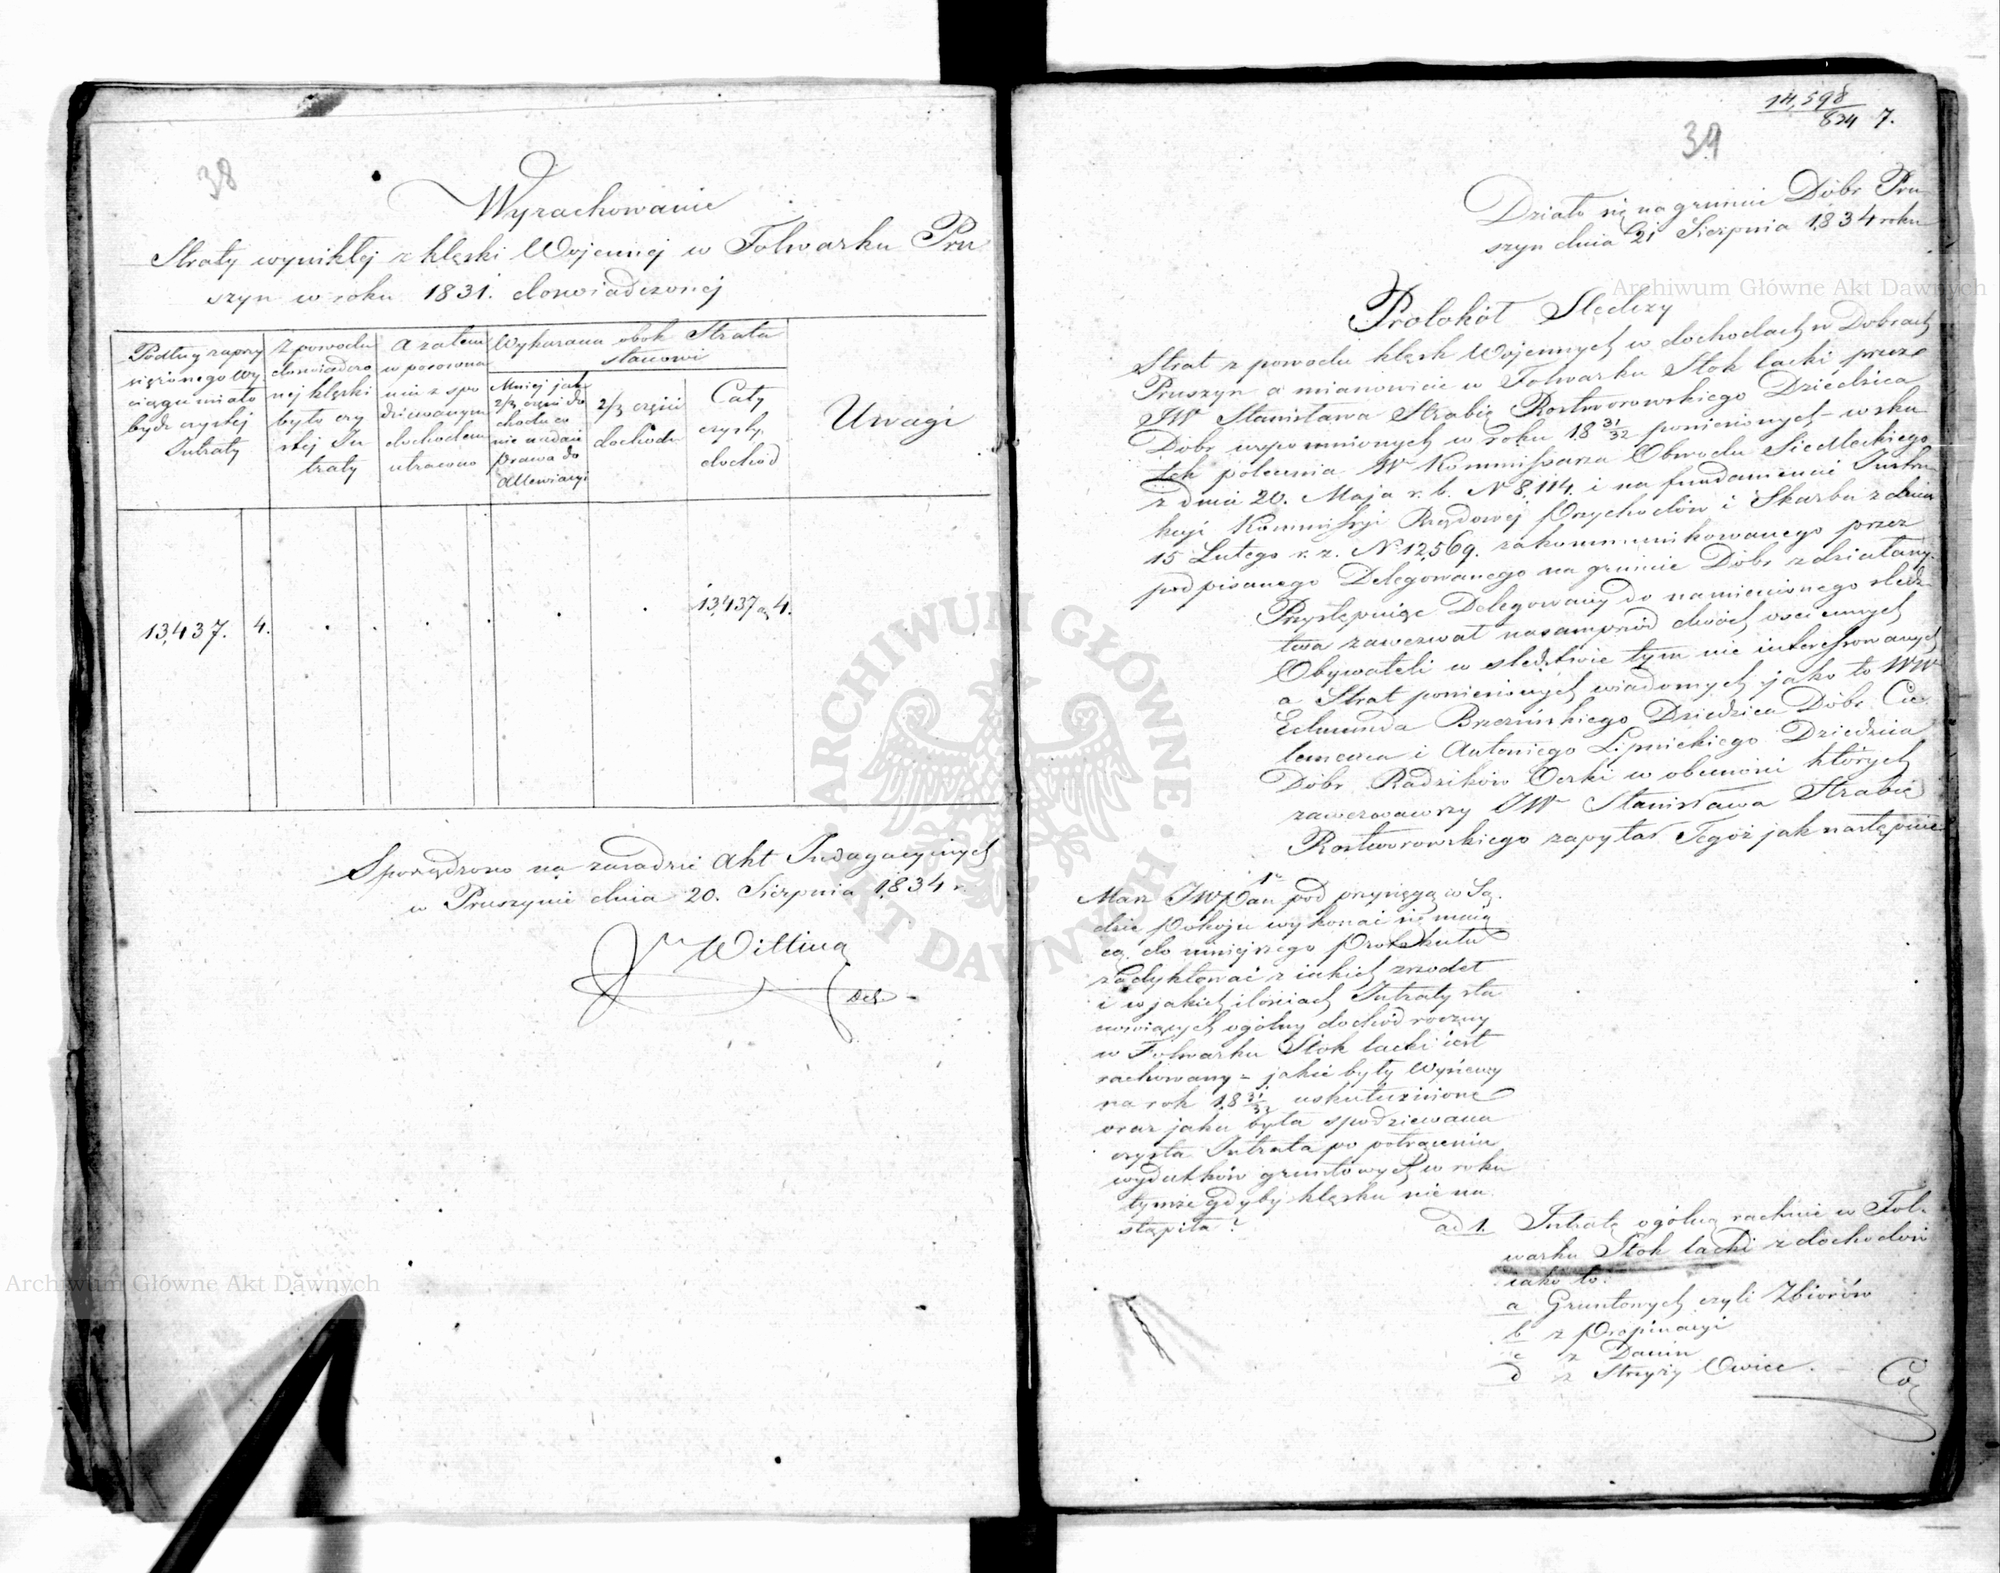 38
Wyrachowanie
Straty wynikłej z klęski Wojennej w Folwarku Pru
szyn w roku 1831. doswiadczonej
Podług zaprzy
siężonego Wy
ciągu miało
bydź czystej
Intraty
Z powodu
doswiadczo
nej klęski
było czy
stej In
traty
A zatem
w porowna
niu z spo
dziewanym
dochodem
utracono
Wykazana obok Strata
stanowi
Mniej jak
2/3 części do
chodu co
nie nadaie
Prawa do
Allewiacyi
2/3 części
dochodu
Cały
czysty
dochód
Uwagi
13,437. 4.
13,437 4.
Sporządzono na zasadzie Akt Indagacyinych
w Pruszynie dnia 20. Sierpnia 1834 r.
Witting
Del.
14,598
834 7.
39
Działo się na gruncie Dóbr Pru
szyn dnia 21 Sierpnia 1834 roku
Protokół Sledczy
Strat z powodu klęsk Wojennych w dochodach w Dobrach
Pruszyn a mianowicie w Folwarku Stok lacki przez
JW Stanisława Hrabię Rostworowskiego Dziedzica
Dóbr wspomnionych w roku 18 31/32 poniesionych – wsku
tek polecenia W Kommissarza Obwodu Siedleckiego
z dnia 20. Maja r. b. N 8,114. i na fundamencie Instru
kcyi Kommissyi Rządowej Przychodów i Skarbu z dnia
15 Lutego r. z. N 12,569. zakommunikowanego przez
podpisanego Delegowanego na gruncie Dóbr zdziałany.
Przystępuiąc Delegowany do namienionego sledz
twa zawezwał nasamprzód dwóch osciennych
Obywateli w sledztwie tym nie interessowanych
a Strat poniesionych wiadomych jako to WW
Edmunda Brzezińskiego Dziedzica Dóbr Cie
lemęca i Antoniego Lipnickiego Dziedzica
Dóbr Radzików Oczki w obecności których
zawezwawszy JW Stanisława Hrabię
Rostworowskiego zapytał Tegoż jak następnie
1o
Masz JWPan pod przysięgą w Są
dzie Pokoju wykonać się maią
cą do niniejszego Protokułu
zadyktować z iakich zrzodeł
i w jakich ilościach Intraty sta
nowiących ogólny dochód roczny
w Folwarku Stok lacki iest
rachowany – jakie były Wysiewy
na rok 18 31/32 uskutecznione
oraz jaka była spodziewana
czysta Intrata po potrąceniu
wydatków gruntowych w roku
tymże gdyby klęska nie na
stąpiła?
ad 1. Intratę ogólną rachuie w Fol-
warku Stok lacki z dochodów
iako to:
a Gruntowych czyli Zbiorów
b z Propinacyi
c z Danin
d z Strzyży Owiec.
Co
Archiwum Główne Akt Dawnych
Archiwum Główne Akt Dawnych
ARCHIWUM GŁÓWNE AKT DAWNYCH